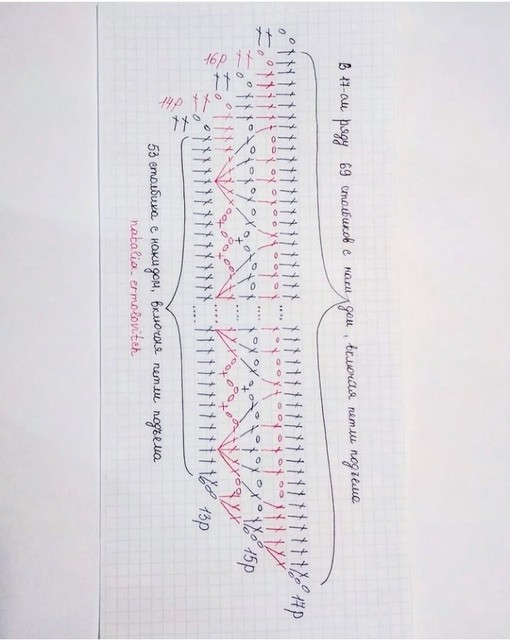 В 17-ом ряду 69 столбиков с накидом, включая петли подъема
16р
14р
17р
15р
13р
53 столбика с накидом, включая петли подъема
natalia_ermolovitch